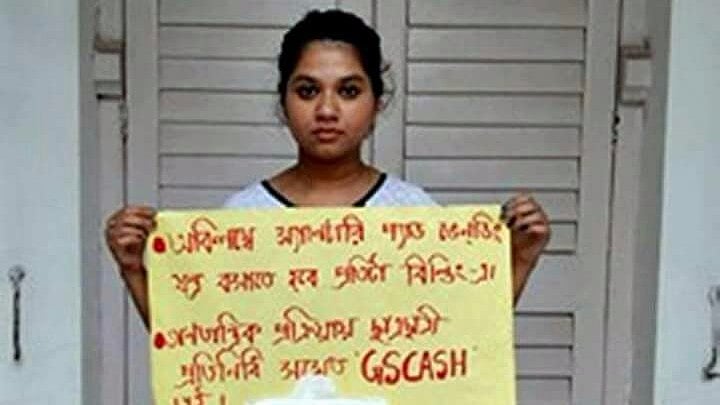 অবিলম্বে স্যানিটারি প্যাড ভেন্ডিং
যন্ত্র বসাতে হবে প্রতিটা বিল্ডিং-এ।
গণতান্ত্রিক প্রক্রিয়ায় ছাত্রছাত্রী
প্রতিনিধি সমেত "GSCASH"